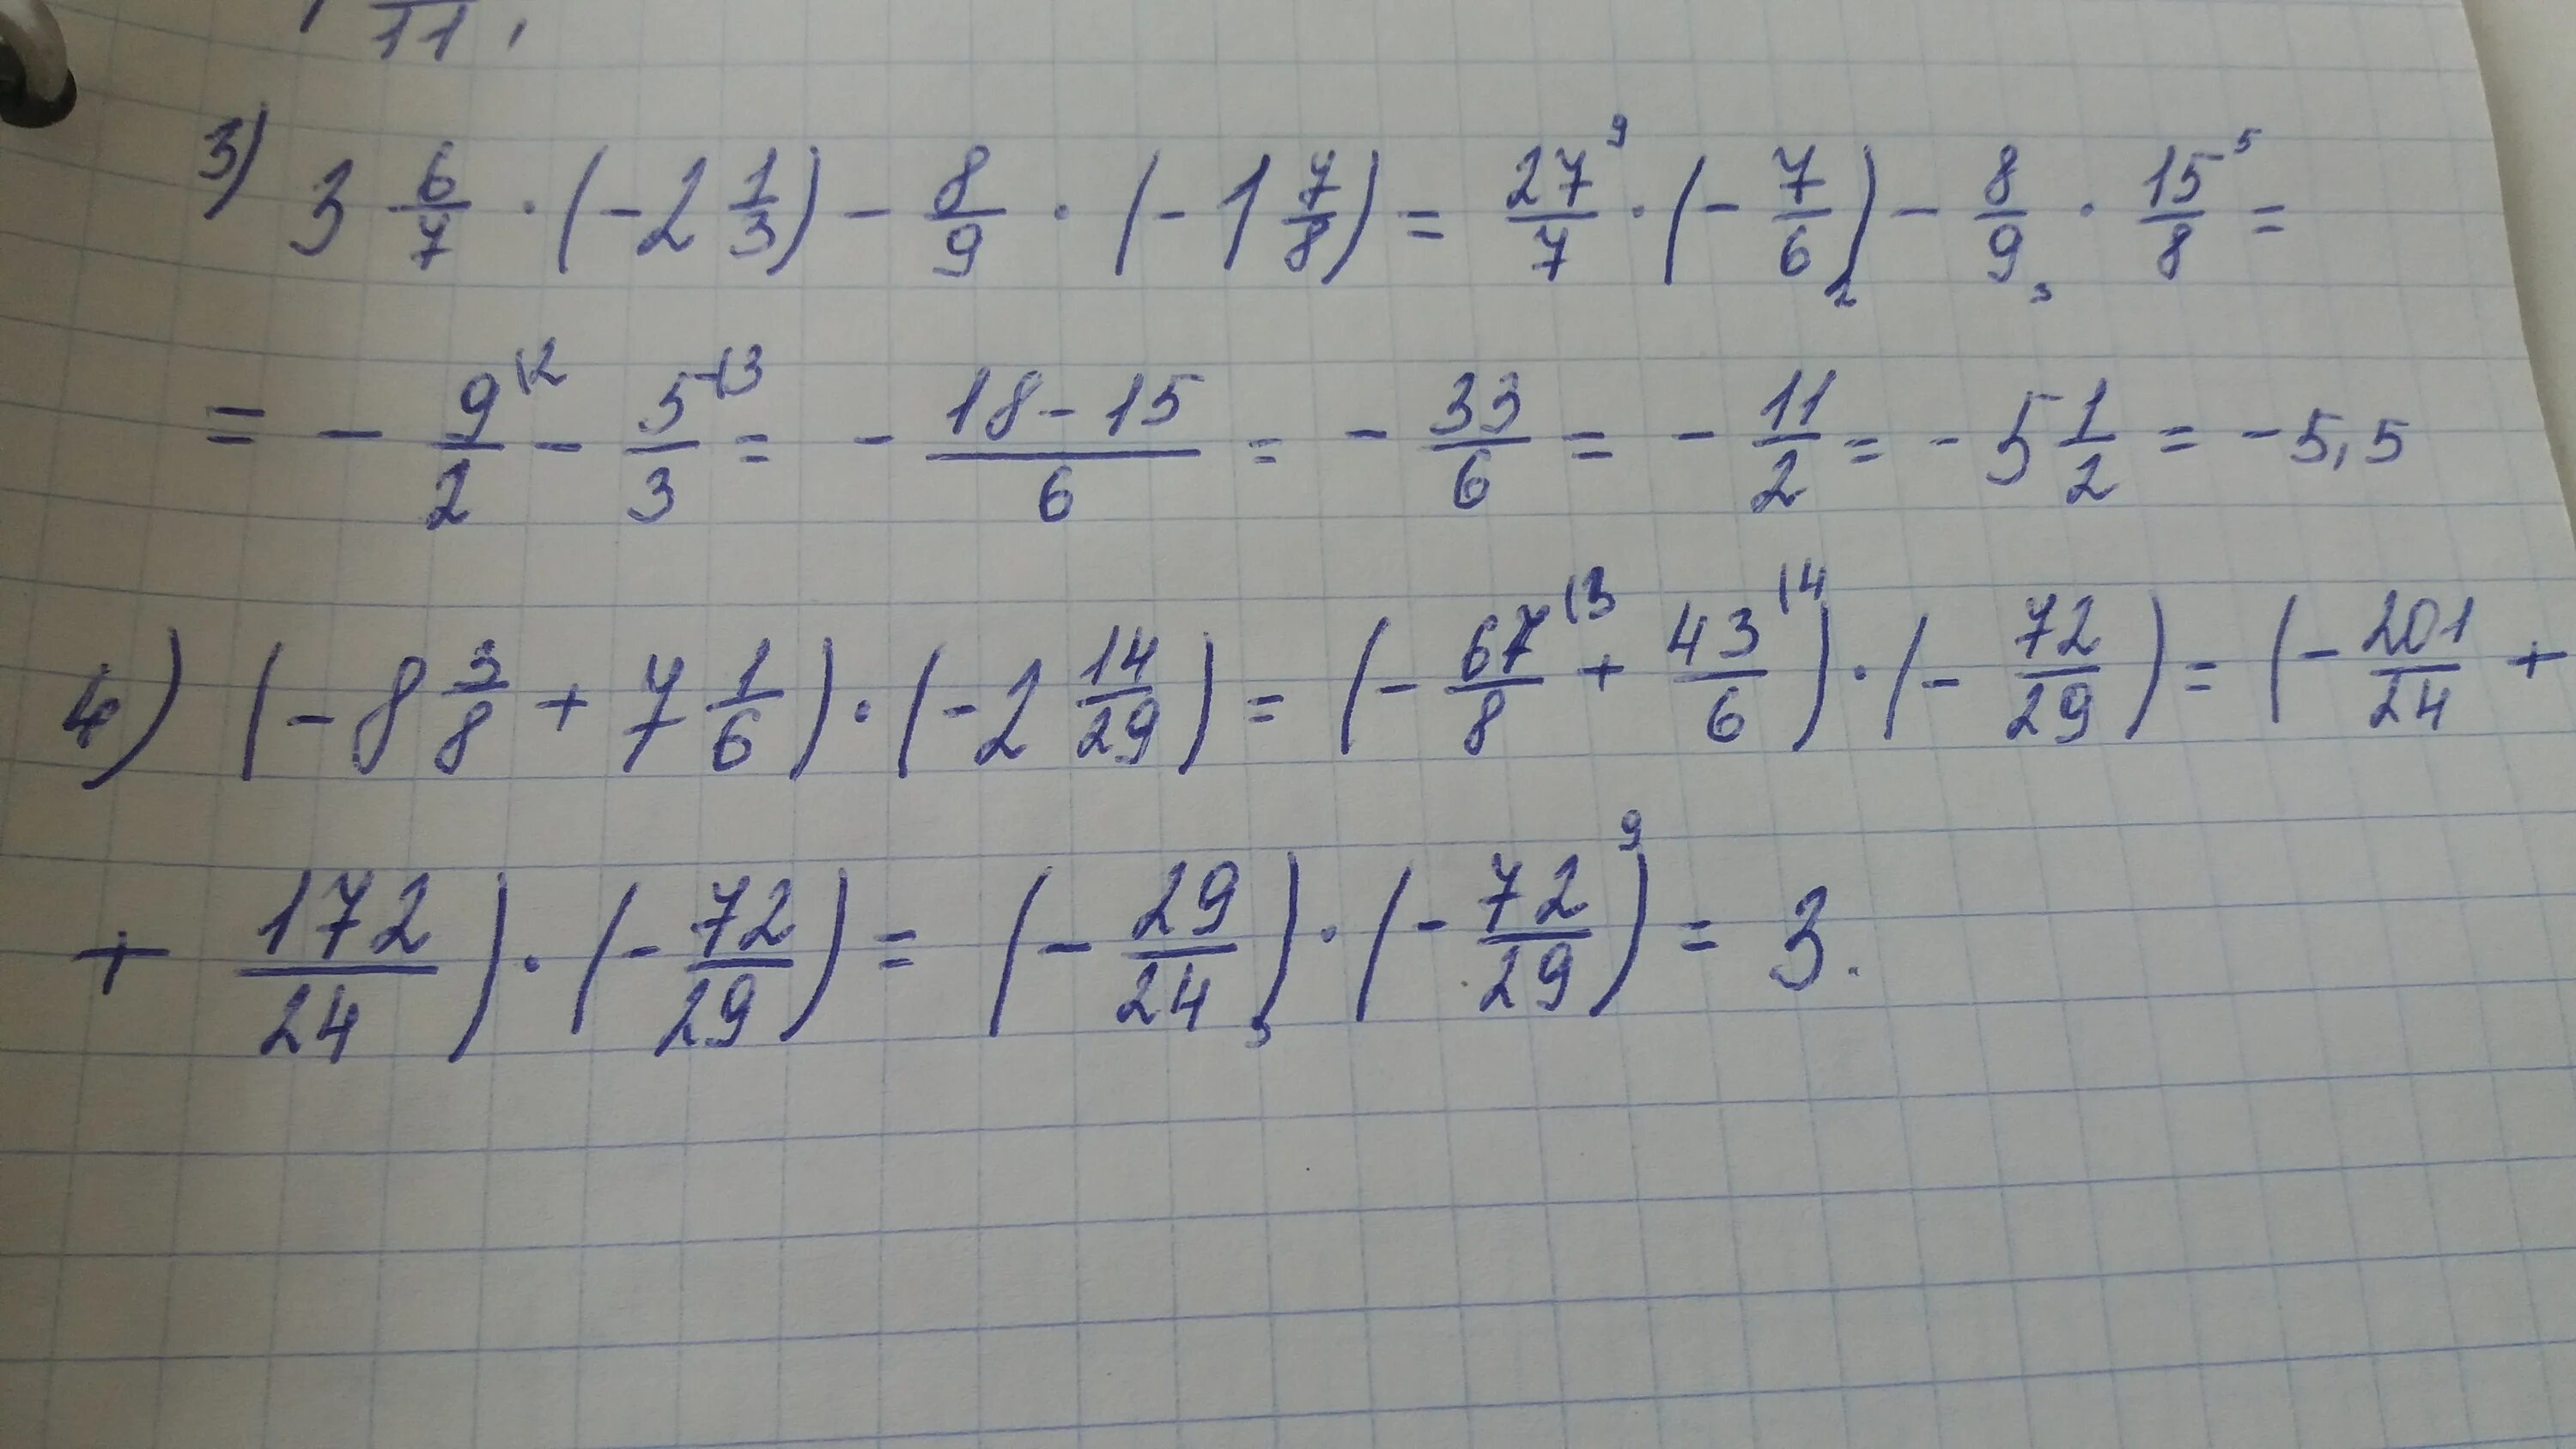 11,
3) 3 6/7 · (-2 1/3) - 8/9 · (-1 7/8) = 27⁹/7 · (-7/6₂) - 8/9₃ · 15⁵/8 =
= - 9\2/2 - 5\3/3 = - 18-15/6 = - 33/6 = - 11/2 = - 5 1/2 = -5,5
4) (-8 3/8 + 7 1/6) · (-2 14/29) = (- 67\3/8 + 43\4/6) · (- 72/29) = (- 201/24 +
+ 172/24) · (- 72/29) = (- 29/24₃) · (- 72⁹/29) = 3.